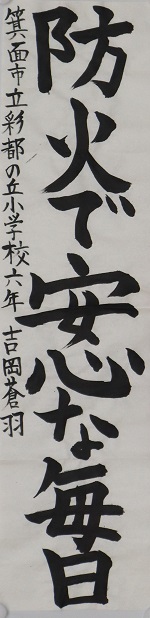 防火で安心な毎日
箕面市立彩都の丘小学校六年 吉岡蒼羽